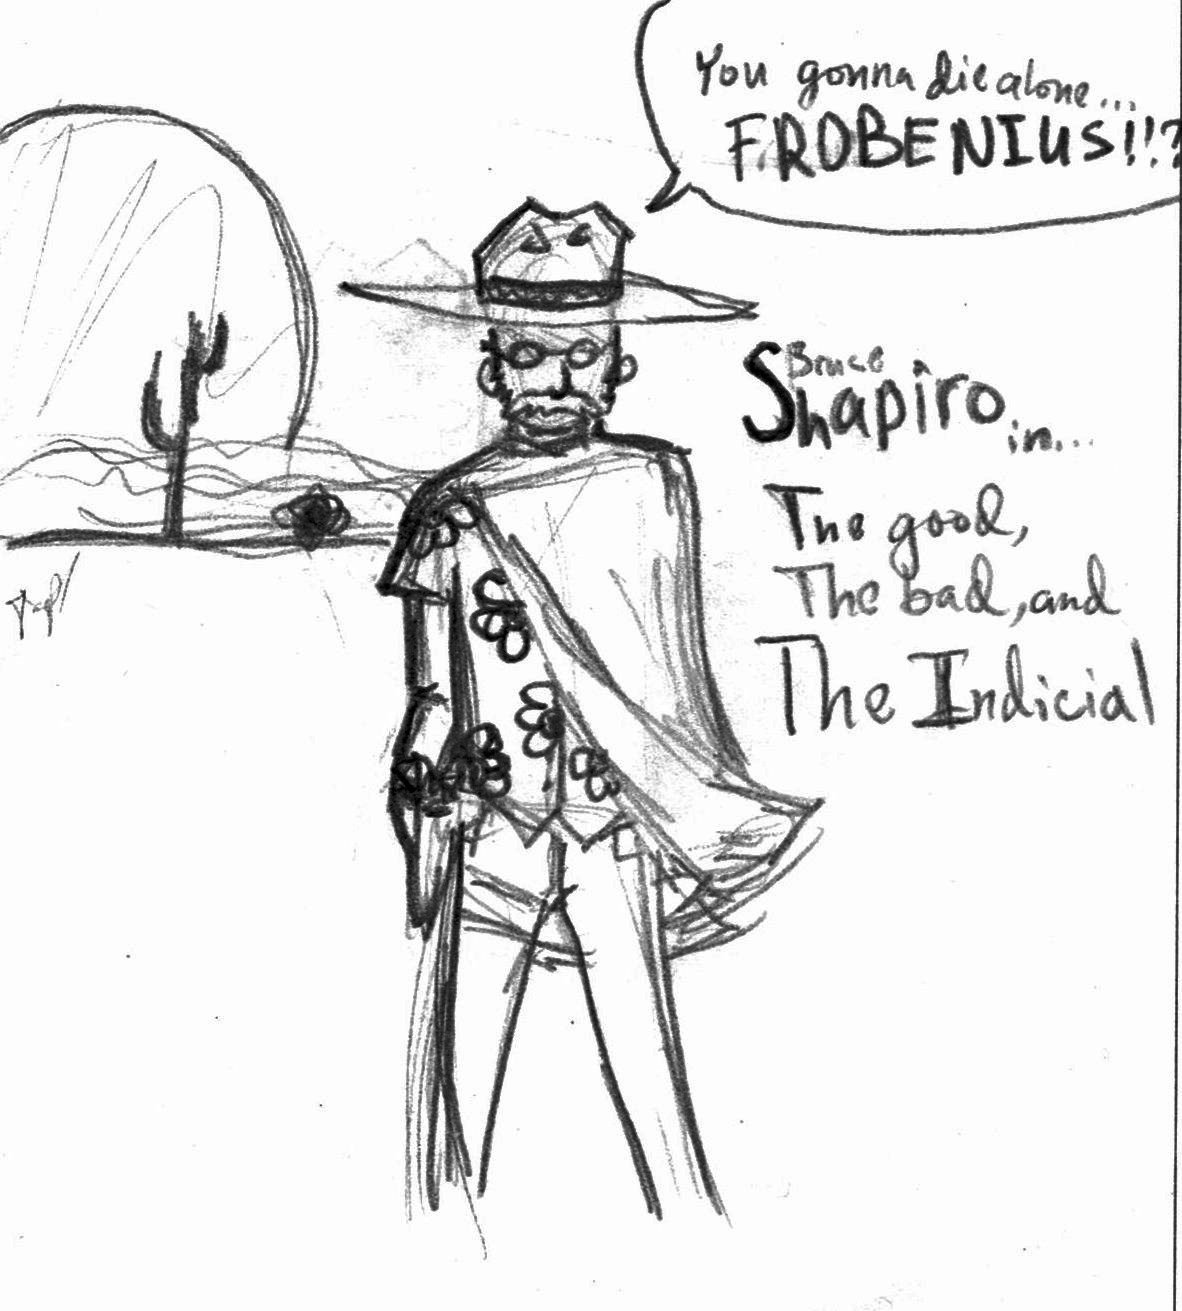 You gonna die alone...
FROBENIUS!!?
Bruce
Shapiro in...
The good,
The bad, and
The Indicial